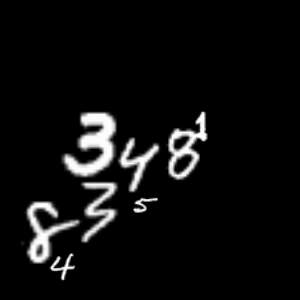 3481
835
4